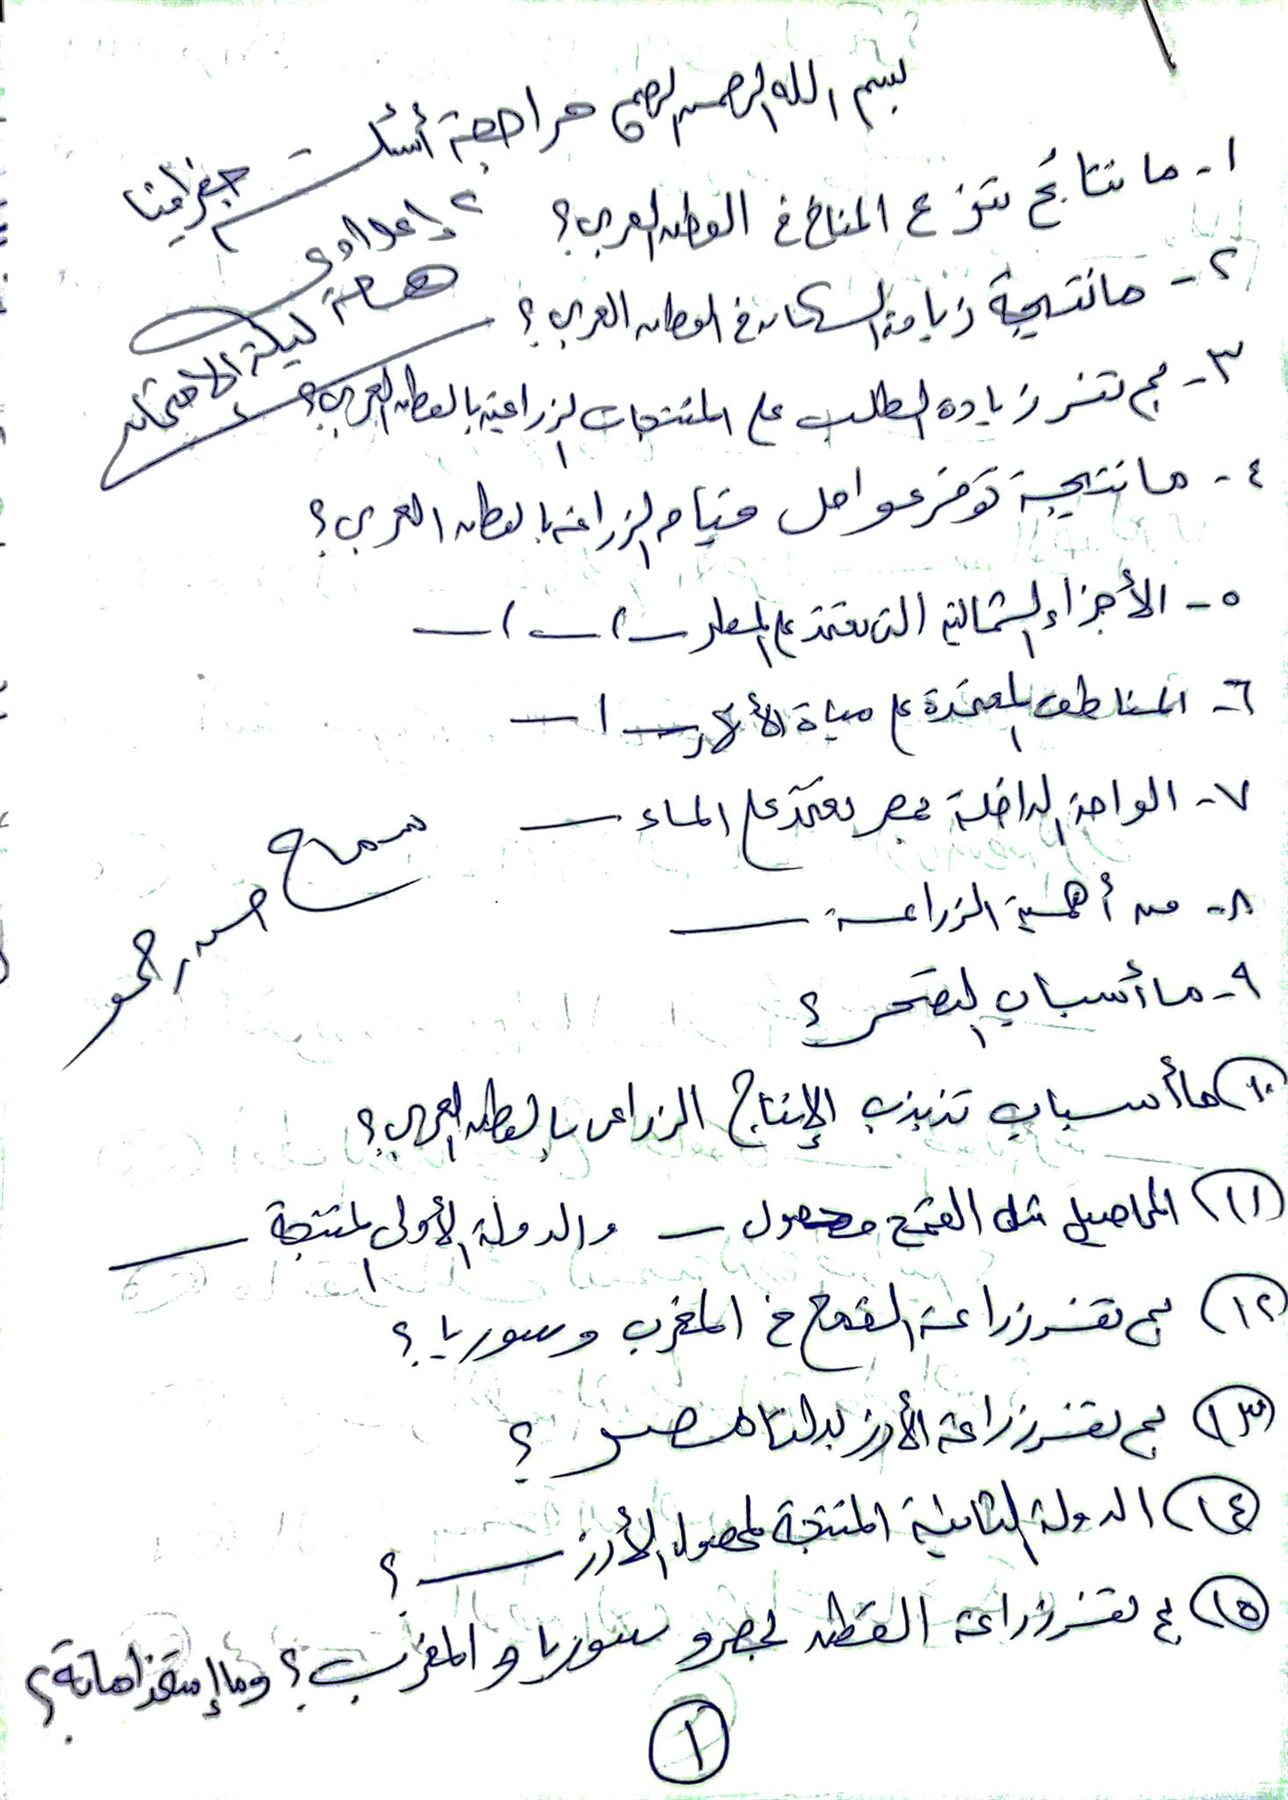 بسم الله الرحمن الرحيم مراجعة أسئلة جغرافيا
٢ إعدادى
هامة ليلة الامتحان
١- ما نتائج تنوع المناخ فى الوطن العربى؟
٢- ما نتيجة زيادة السكان فى الوطن العربى؟
٣- بم تفسر زيادة الطلب على المنتجات الزراعية بالوطن العربى؟
٤- ما نتيجة توفر عوامل قيام الزراعة بالوطن العربى؟
٥- الأجزاء الشمالية التى تعتمد على المطر ــ، ــ، ــ
٦- المناطق المعتمدة على مياة الأنهار ــ، ــ
٧- الواحة الداخلة بمصر تعتمد على الماء ــ
٨- من أهمية الزراعة ــ
سماح حسن
٩- ما أسباب التصحر؟
١٠ ما أسباب تذبذب الإنتاج الزراعى بالوطن العربى؟
١١ المحاصيل مثل القمح محصول ــ والدولة الأولى المنتجة ــ
١٢ بم تفسر زراعة القمح فى المغرب وسوريا؟
١٣ بم تفسر زراعة الأرز بدلتا مصر؟
١٤ الدولة الثانية المنتجة لمحصول الأرز ــ؟
١٥ بم تفسر زراعة القطن بمصر و سوريا والمغرب؟ وما إستخداماتة؟
١